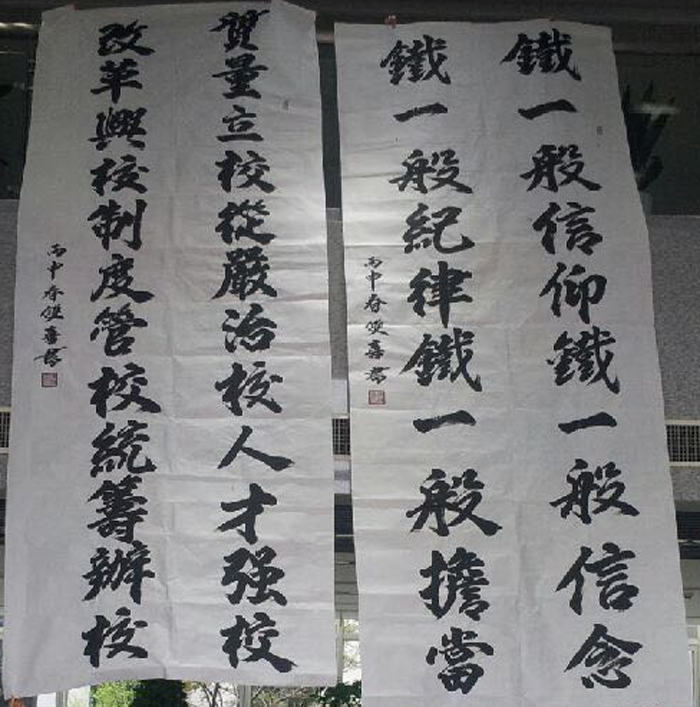 鐵一般信仰鐵一般信念
鐵一般紀律鐵一般擔當
丙申春雙喜書
質量立校從嚴治校人才强校
改革興校制度管校統籌辦校
丙申春雙喜書